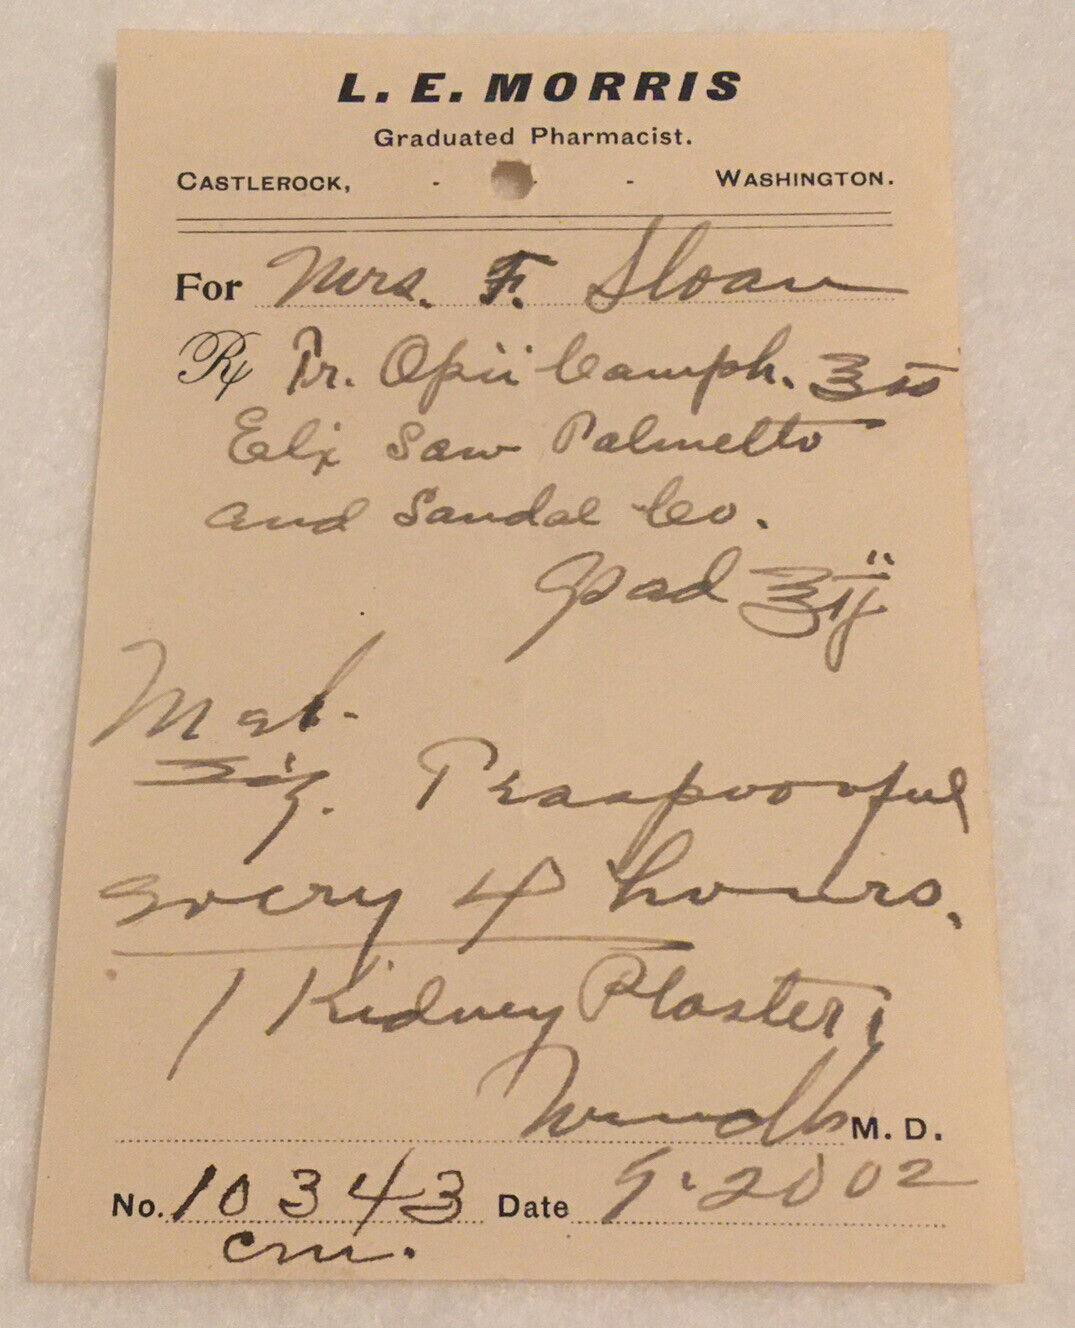 L. E. MORRIS
Graduated Pharmacist.
CASTLEROCK, - - - WASHINGTON.
For Mrs. F. Sloan
Rx Tr. Opii Camph. ℥ss
Elix Saw Palmetto
and Sandal Co.
qs ad ℥ij
M et
Sig. Teaspoonful
every 4 hours.
1 Kidney Plaster
M. D.
No. 10343 Date 9-2002
cm.